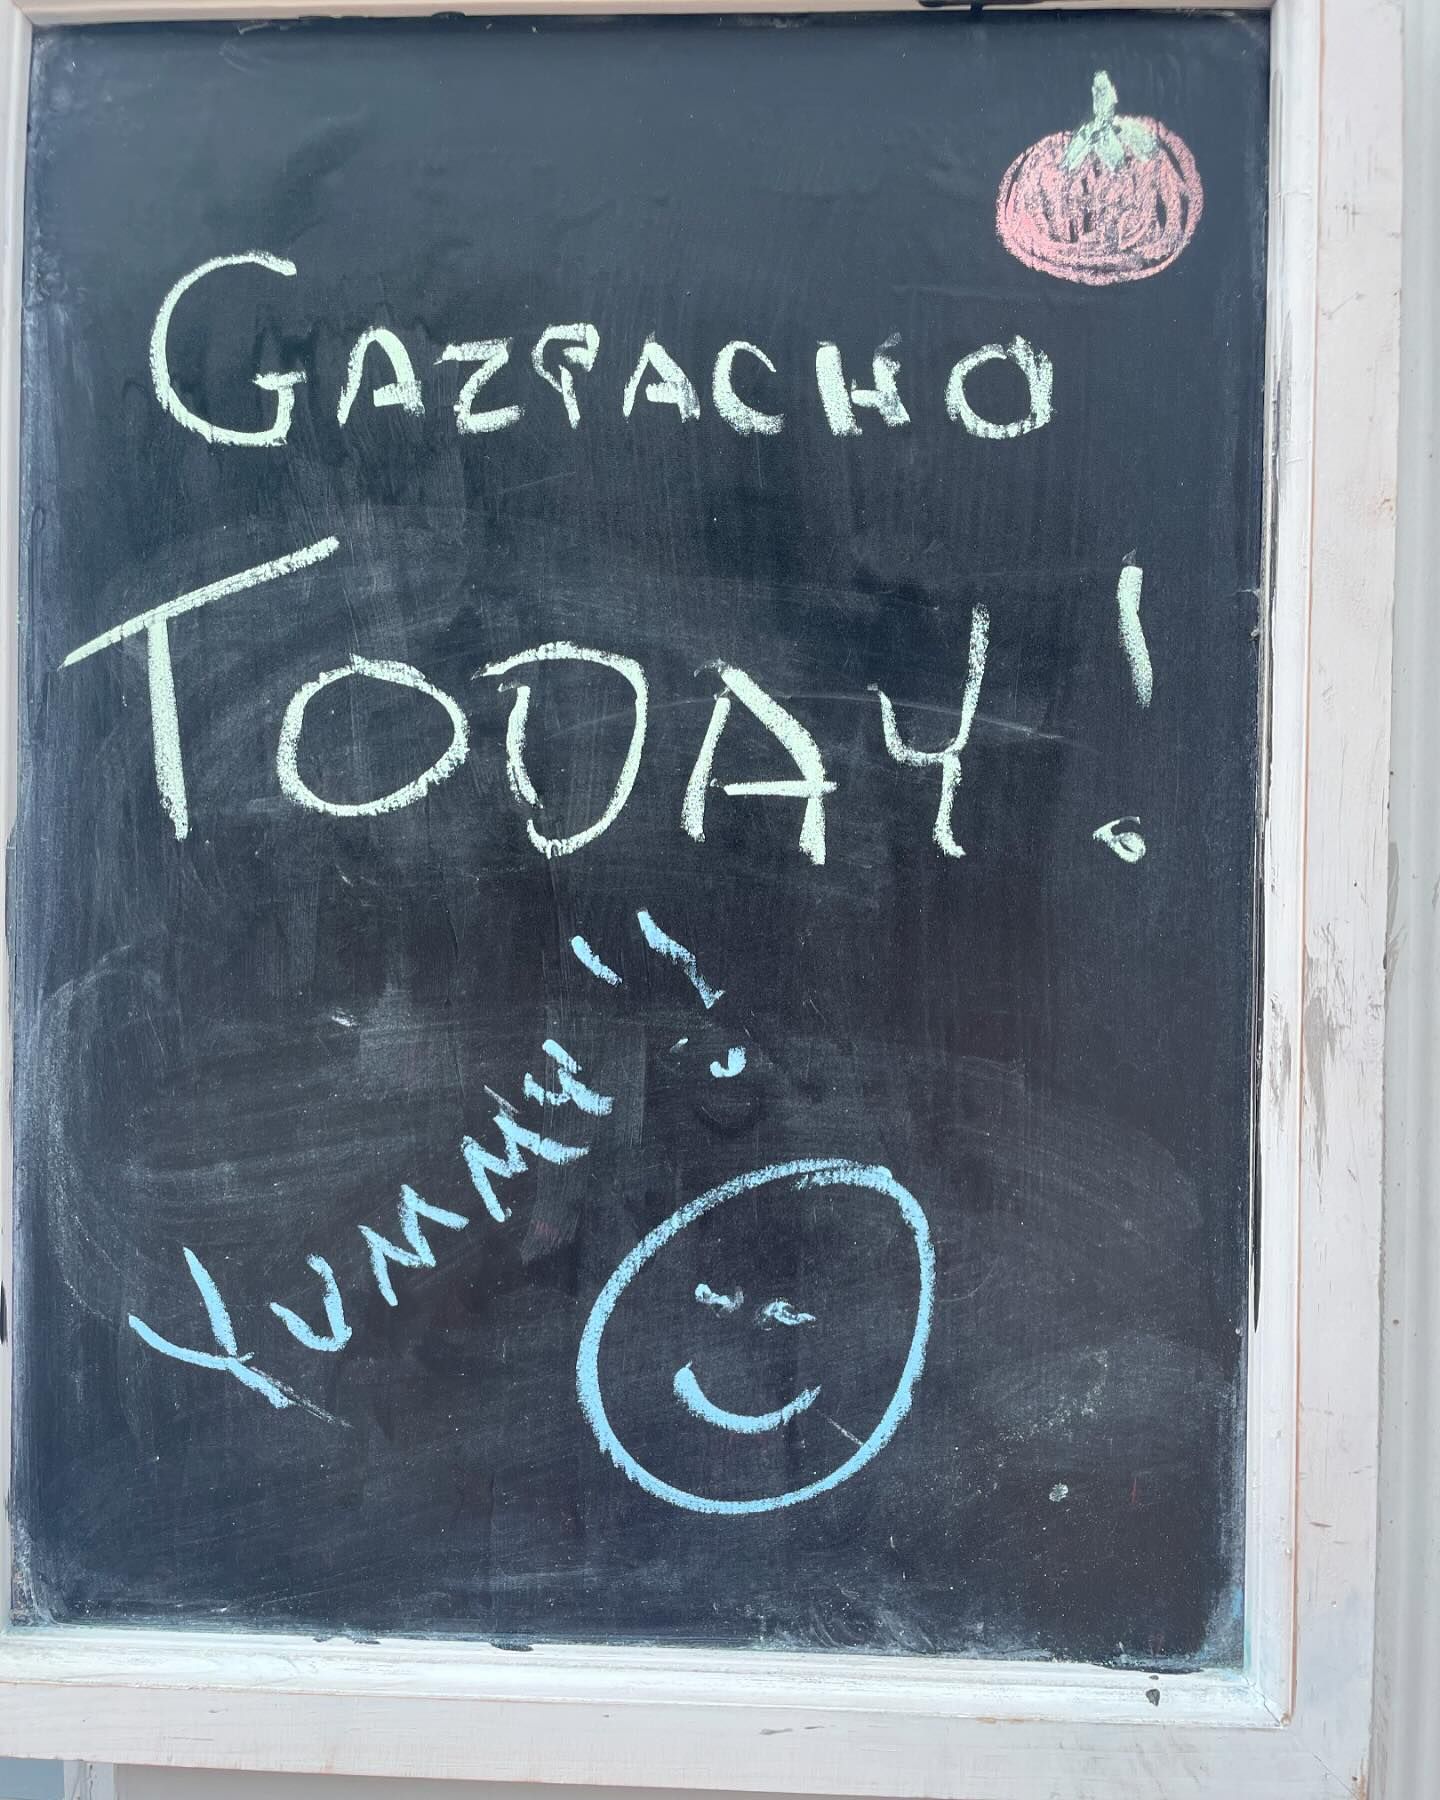 GAZPACHO
TODAY!
YUMMY!!